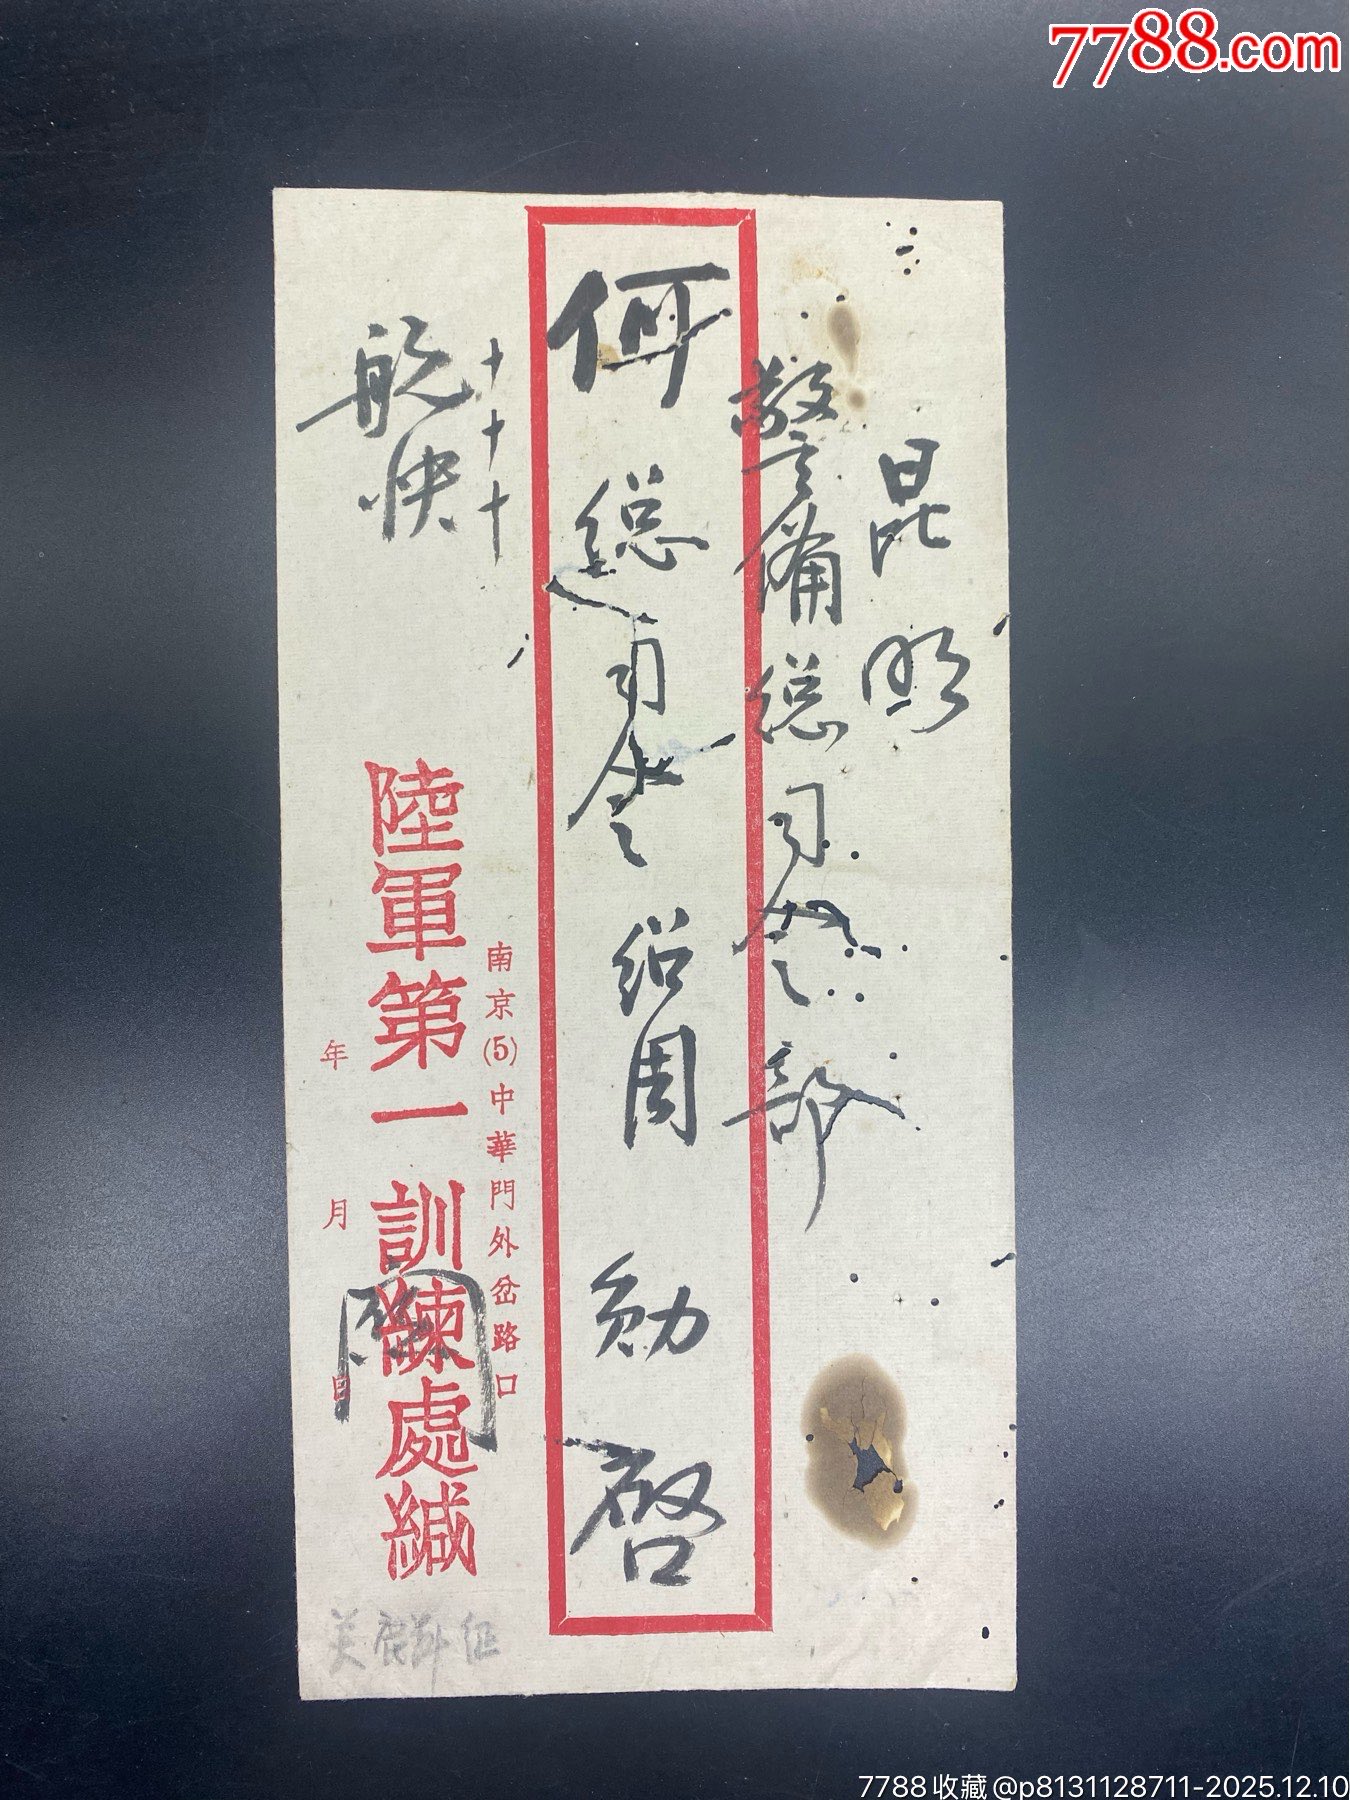 7788.com
昆明
警備總司令部
何總司令紹周勛啓
十十十
航快
南京(5)中華門外岔路口
陸軍第一訓練處緘
年月日
7788收藏@p8131128711-2025.12.10